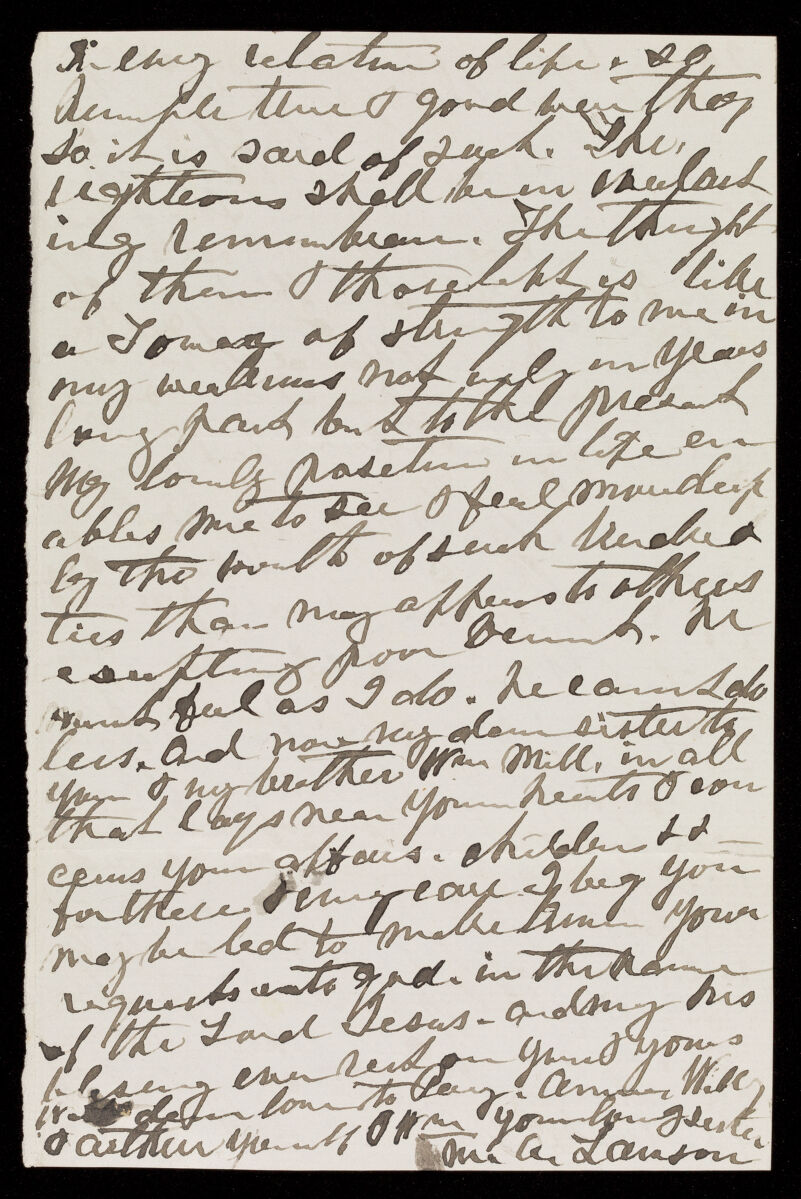 in every relation of life & so
humble true & good were they
So it is said of such. The
righteous shall be in everlast
ing remembrance. The thought
of them & those left is like
a Tower of strength to me in
my weakness not only in years
long past but to the present
My lonely position in life en
ables me to see & feel more deeply
by the worth of such kindred
ties than may appear to others
excepting poor Dennis. He
must feel as I do. he cannot do
less. And now my dear sister to
you & my brother Wm Mill. in all
that lays near your hearts & con
cerns your affairs. children &&
for these & every care I beg you
may be led to make known your
requests unto god. in the name
of the Lord Jesus - and may his
blessing ever rest on you & yours
dear love to Anna Willy
& arthur yourself & Wm your loving sister
M A Lamson